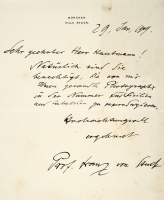 MÜNCHEN
VILLA STUCK
29. Jan. 1909.
Sehr geehrter Herr Kaufmann!
Natürlich sind Sie
berechtigt, die von mir
Ihnen gesandte Photographie
in der Nummer
zu reproduzieren.
Hochachtungsvoll
ergebenst
Prof. Franz von Stuck